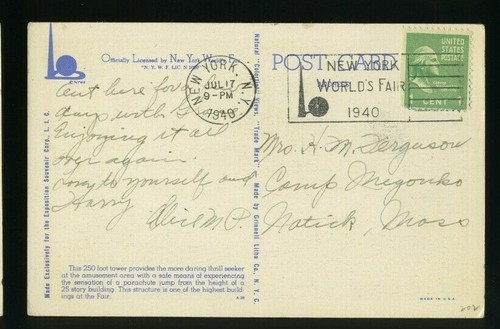 Officially Licensed by New York W
"N. Y. W. F. LIC.
POST CARD
NEW YORK, N.Y.
JUL 17
9-PM
1940
NEW YORK
WORLD'S FAIR
1940
UNITED STATES
POSTAGE
1 CENT
Out here for a
day with
Enjoying it all
over again.
Love to yourself and
Harry
Olive M P.
Mrs. H. M. Ferguson
Camp Megonko
Natick, Mass
This 250 foot tower provides the more daring thrill seeker
at the amusement area with a safe means of experiencing
the sensation of a parachute jump from the height of a
25 story building. This structure is one of the highest build-
ings at the Fair.
Made Exclusively for the Exposition Souvenir Corp., L. I. C.
Natural "Colored Views, "Trade Mark" Made by Grinnell Litho Co., N. Y. C.
MADE IN U.S.A.
202